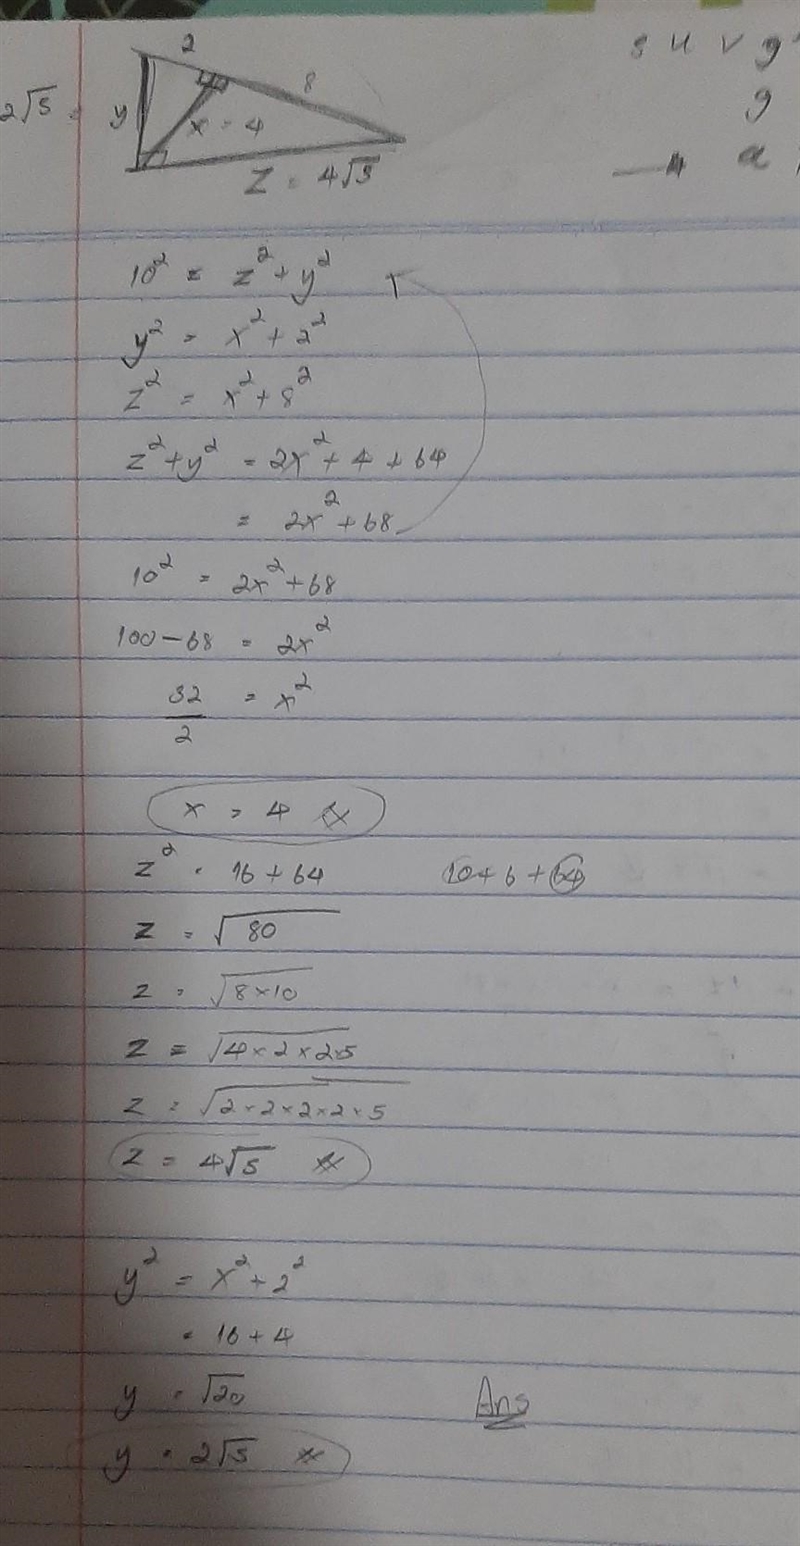 2
8
2√5 = y
x = 4
z = 4√5
s u v g
g
10² = z² + y²
y² = x² + 2²
z² = x² + 8²
z² + y² = 2x² + 4 + 64
= 2x² + 68
10² = 2x² + 68
100 - 68 = 2x²
32/2 = x²
x = 4
z² = 16 + 64 10 + 6 + 64
z = √80
z = √8×10
z = √4×2×2×5
z = √2×2×2×2×5
z = 4√5
y² = x² + 2²
= 16 + 4
y = √20 Ans
y = 2√5